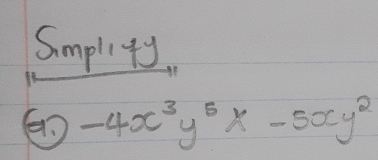 Simplify
(a.) -4x³y⁵ x -5xy²